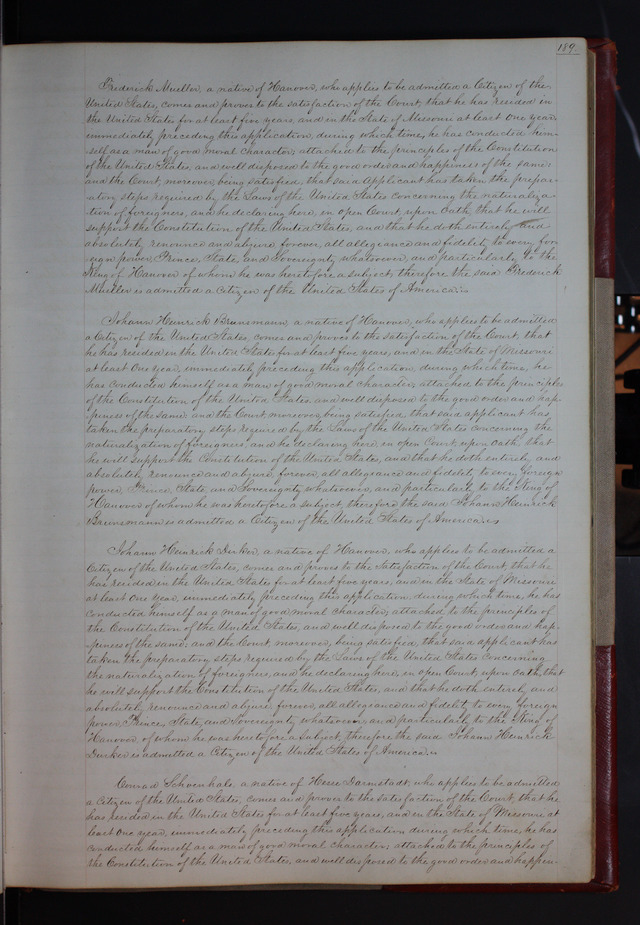 189
Frederick Mueller, a native of Hanover, who applies to be admitted a Citizen of the
United States, comes and proves to the satisfaction of the Court, that he has resided in
the United States for at least five years, and in the State of Missouri at least One year
immediately preceding this application, during which time, he has conducted him-
self as a man of good moral character; attached to the principles of the Constitution
of the United States, and well disposed to the good order and happiness of the same:
and the Court, moreover, being satisfied, that said applicant has taken the prepar-
atory steps required by the Laws of the United States concerning the naturaliza-
tion of foreigners, and he declaring here, in open Court, upon Oath, that he will
support the Constitution of the United States, and that he doth entirely and
absolutely renounce and abjure forever, all allegiance and fidelity to every for-
eign power, Prince, State, and Sovereignty whatsoever, and particularly to the
King of Hanover of whom he was heretofore a subject, therefore the said Frederick
Mueller is admitted a Citizen of the United States of America.
Johann Heinrick Brunsmann, a native of Hanover, who applies to be admitted
a Citizen of the United States, comes and proves to the satisfaction of the Court, that
he has resided in the United States for at least five years, and in the State of Missouri
at least One year, immediately preceding this application, during which time, he
has conducted himself as a man of good moral character, attached to the principles
of the Constitution of the United States, and well disposed to the good order and hap-
piness of the same and the Court moreover, being satisfied, that said applicant has
taken the preparatory steps required by the Laws of the United States concerning the
naturalization of foreigners, and he declaring here in open Court, upon Oath, that
he will support the Constitution of the United States, and that he doth entirely and
absolutely renounce and abjure, forever, all allegiance and fidelity to every foreign
power, Prince, State, and Sovereignty whatsoever, and particularly to the King of
Hanover of whom he was heretofore a subject, therefore the said Johann Heinrick
Brunsmann is admitted a Citizen of the United States of America.
Johann Heinrick Durker, a native of Hanover, who applies to be admitted a
Citizen of the United States, comes and proves to the Satisfaction of the Court, that he
has resided in the United States for at least five years, and in the State of Missouri
at least One year, immediately preceding this application, during which time, he has
conducted himself as a man of good moral character, attached to the principles of
the Constitution of the United States, and well disposed to the good order and hap-
piness of the same; and the Court, moreover, being satisfied, that said applicant has
taken the preparatory steps required by the Laws of the United States concerning
the naturalization of foreigners, and he declaring here, in open Court, upon Oath, that
he will support the Constitution of the United States, and that he doth entirely and
absolutely renounce and abjure forever, all allegiance and fidelity to every foreign
power, Prince, State, and Sovereignty whatsoever, and particularly to the King of
Hanover, of whom he was heretofore a subject, therefore the said Johann Heinrick
Durker is admitted a Citizen of the United States of America.
Conrad Schoenhals, a native of Hesse Darmstadt, who applies to be admitted
a Citizen of the United States, comes and proves to the satisfaction of the Court, that he
has resided in the United States for at least five years, and in the State of Missouri at
least One year, immediately preceding this application during which time, he has
conducted himself as a man of good moral character; attached to the principles of
the Constitution of the United States, and well disposed to the good order and happin-